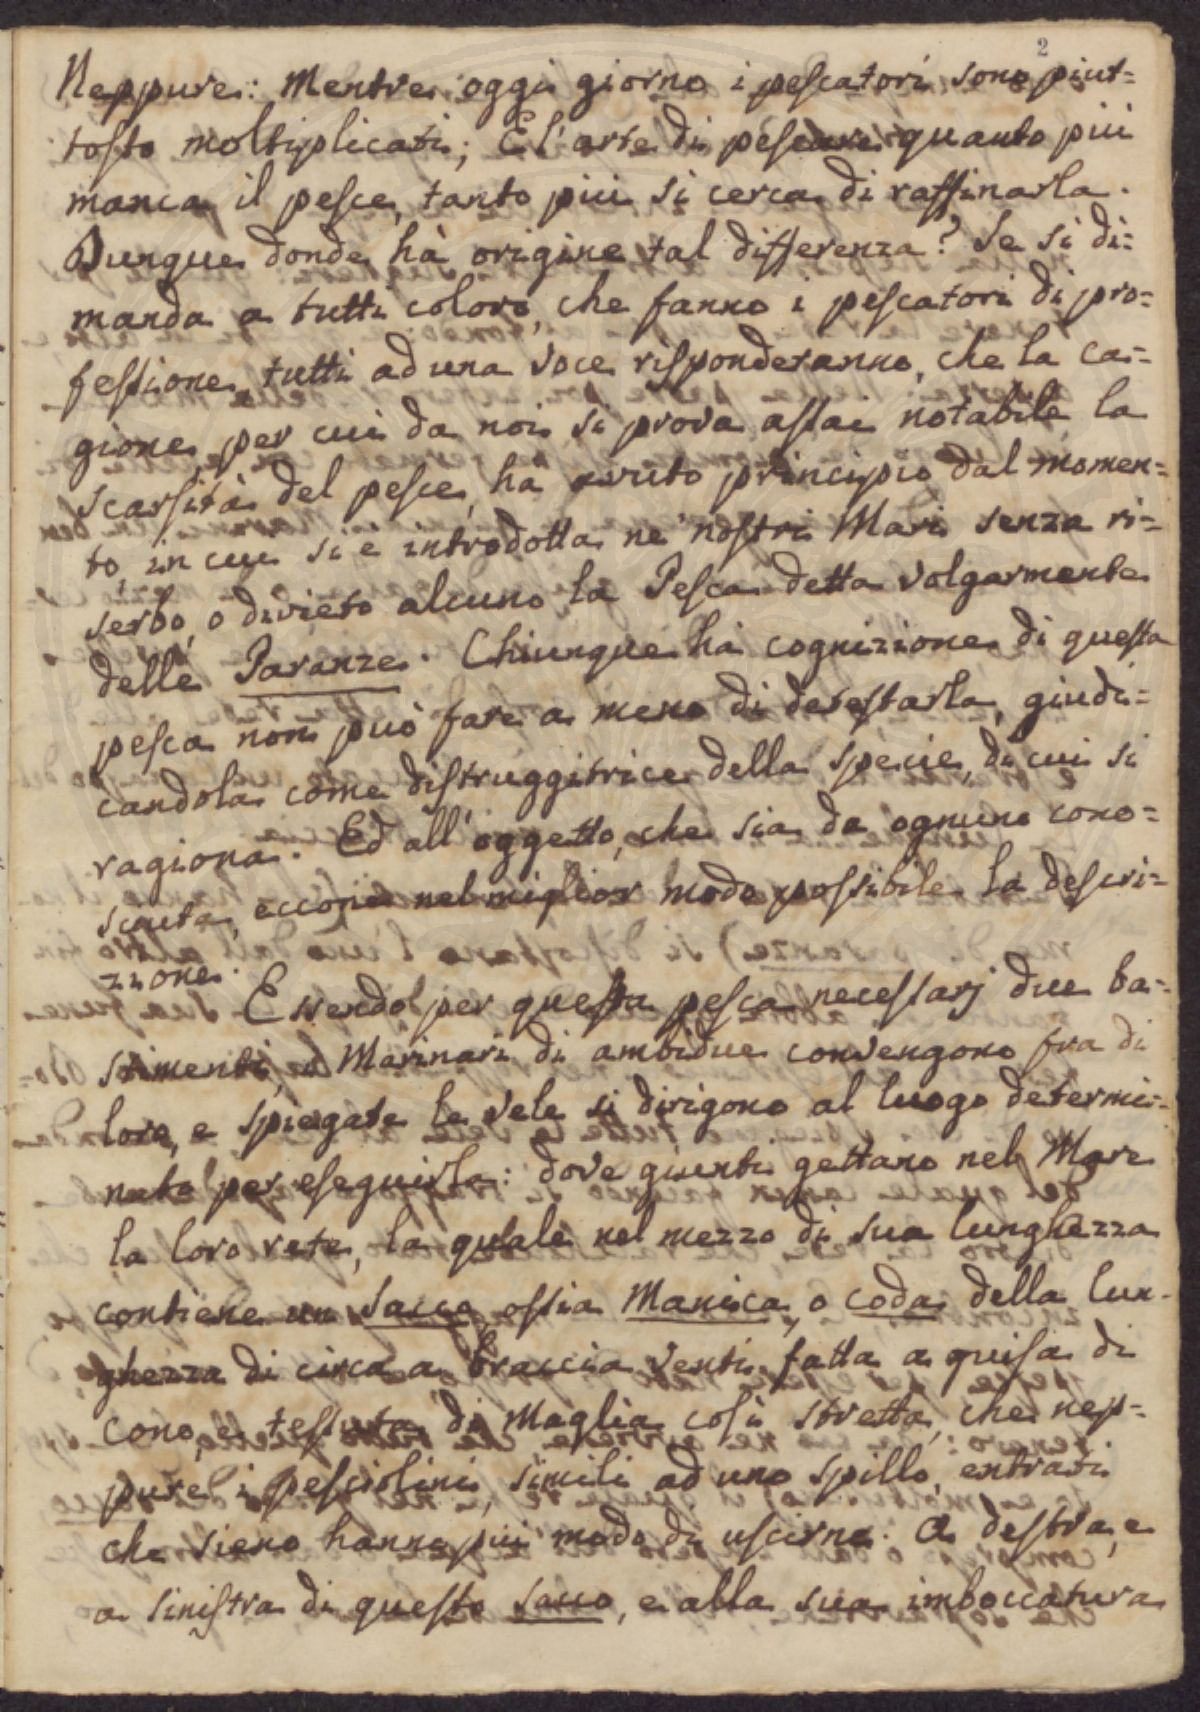 2
Neppure: Mentre oggi giorno i pescatori sono piut=
tosto moltiplicati; E l'arte di pescare quanto più
manca il pesce, tanto più si cerca di raffinarla.
Dunque donde hà origine tal differenza? Se si di=
manda a tutti coloro, che fanno i pescatori di pro=
fessione, tutti ad una voce risponderanno, che la ca=
gione, per cui da noi si prova assai notabile la
scarsità del pesce, hà avuto principio dal momen=
to, in cui si è introdotta ne' nostri Mari senza ri=
serbo, o divieto alcuno la Pesca detta volgarmente
delle Paranze. Chiunque hà cognizione di questa
pesca non può fare a meno di detestarla, giudi=
candola come distruggitrice della specie, di cui si
ragiona. Ed all'oggetto, che sia da ognuno cono=
sciuta, eccone nel miglior modo possibile la descri=
zione.
Essendo per questa pesca necessarj due ba=
stimenti, i Marinari di ambidue convengono fra di
loro, e spiegate le vele si dirigono al luogo determi=
nato per eseguirla: dove giunti gettano nel Mare
la loro rete, la quale nel mezzo di sua lunghezza
contiene un sacco ossia Manica, o coda della lun=
ghezza di circa a braccia venti fatta a guisa di
cono, e tessuta di Maglia così stretta, che nep=
pure i pesciolini, simili ad uno spillo, entrati
che sieno hanno più modo di uscirne. A destra, e
a sinistra di questo sacco, e alla sua imboccatura